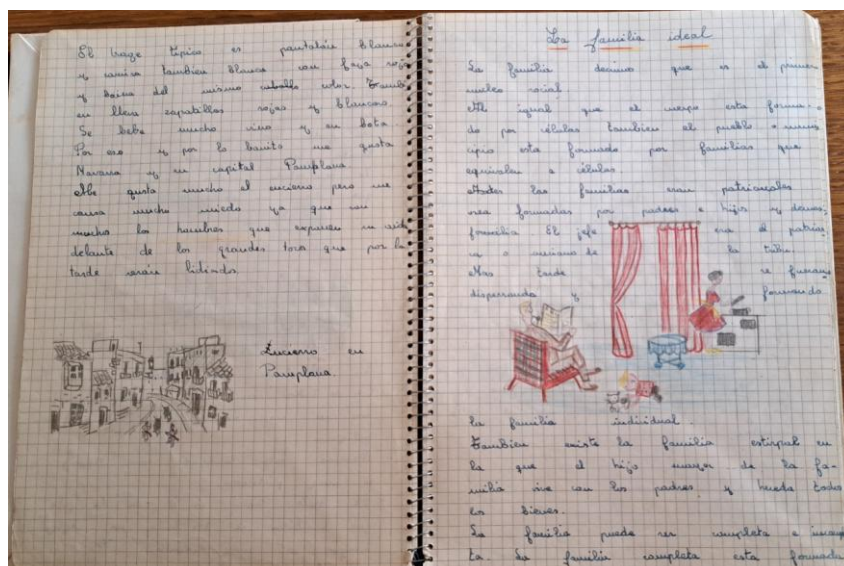 El trage típico es pantalón blanco
y camisa tambien blanca con faja roja
y boina del mismo color. Tambi
en lleva zapatillas rojas y blancas.
Se bebe mucho vino y en bota.
Por eso y por lo bonito me gusta
Navarra y su capital Pamplona.
Me gusta mucho el encierro pero me
causa mucho miedo ya que son
muchos los hombres que exponen su vida
delante de los grandes toros que por la
tarde serán lidiados.
Encierro en
Pamplona.
La familia ideal
La familia decimos que es el primer
nucleo social.
Al igual que el cuerpo esta forma-
do por células tambien el pueblo o muni
cipio esta formado por familias que
equivalen a células.
Antes las familias eran patriarcales
osea formadas por padres e hijos y demas
familia El jefe era el patriar
ca o anciano de la tribu.
Mas tarde se fueron
dispersando y formando
la familia individual.
Tambien existe la familia estirpal en
la que el hijo mayor de la fa-
milia vive con los padres y hereda todos
los bienes.
La familia puede ser completa e incomple
ta. La familia completa esta formada